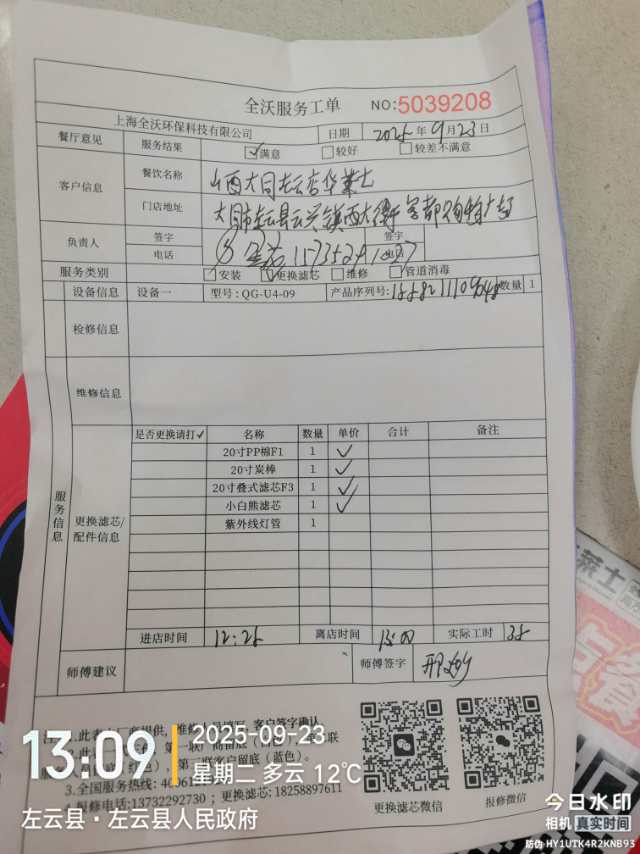 全沃服务工单 NO:5039208
上海全沃环保科技有限公司 日期 2025年9月23日
餐厅意见 服务结果 ☑满意 □较好 □较差不满意
客户信息 餐饮名称 山西大同左云店华莱士
门店地址 大同市左云县云兴镇西大街
负责人 签字 签字
电话
服务类别 □安装 ☑更换滤芯 □维修 □管道消毒
设备信息 设备一 型号:QG-U4-09 产品序列号: 数量 1
检修信息
维修信息
服务信息
更换滤芯/配件信息
是否更换请打✓ 名称 数量 单价 合计 备注
20寸PP棉F1 1 ✓
20寸炭棒 1 ✓
20寸叠式滤芯F3 1 ✓
小白熊滤芯 1 ✓
紫外线灯管 1
进店时间 12:25 离店时间 13:00 实际工时 35
师傅建议 师傅签字
客户签字确认
3.全国服务热线:
4.报修电话:13732292730;更换滤芯:18258897611
更换滤芯微信 报修微信
莱士
餐
13:09 2025-09-23
星期二 多云 12℃
左云县·左云县人民政府
今日水印
相机 真实时间
防伪 HY1UTK4R2KNB93